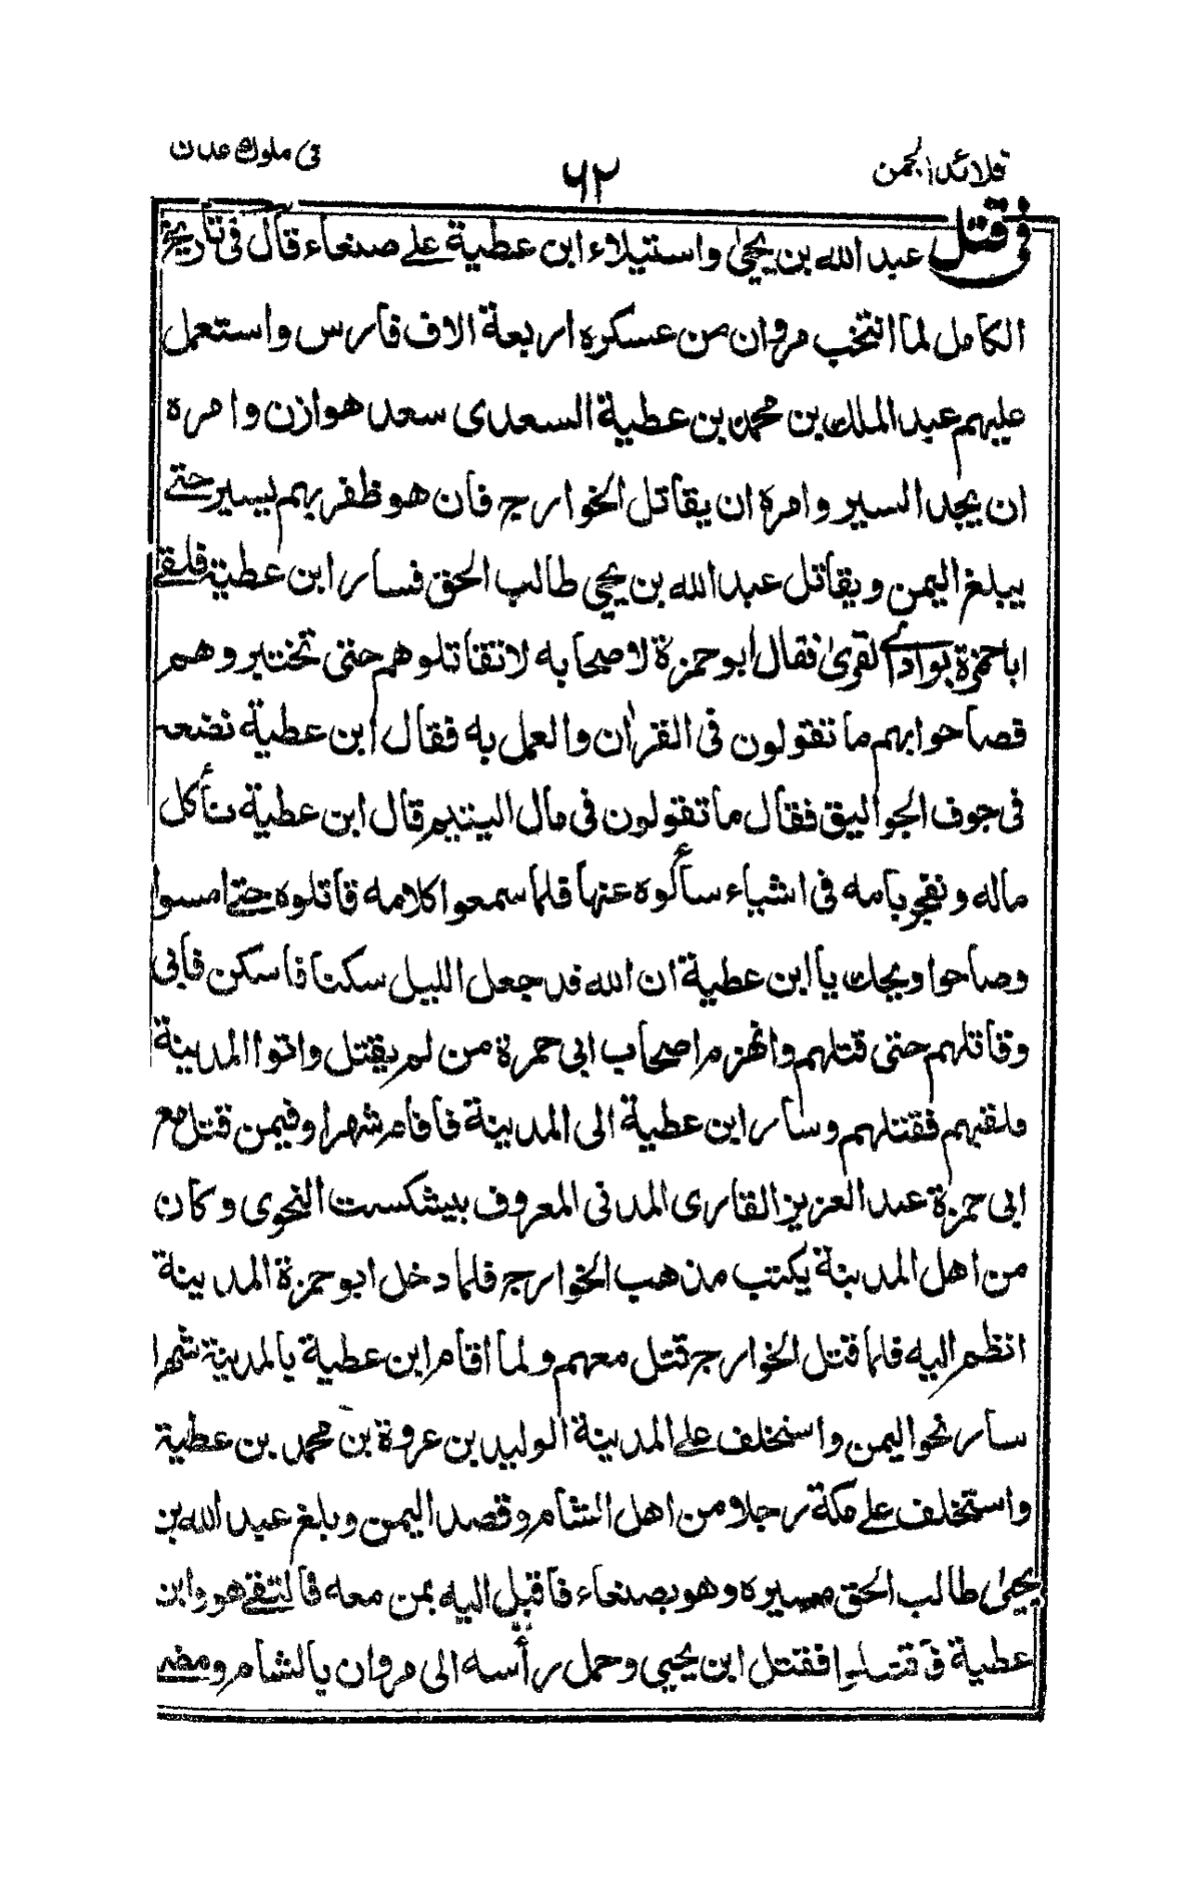 قلائد الجمن
٦٢
فى ملوك عدن
فى قتل عبد الله بن يحيىٰ واستيلاء ابن عطية على صنعاء قال فى تاريخ
الكامل لما انتخب مروان من عسكره اربعة الاف فارس واستعمل
عليهم عبد الملك بن محمد بن عطية السعدى سعد هوازن وامره
ان يجد السير وامره ان يقاتل الخوارج فان هو ظفر بهم يسير حتى
يبلغ اليمن ويقاتل عبد الله بن يحيى طالب الحق فسار ابن عطية فلقى
ابا حمزة بوادى القرىٰ فقال ابو حمزة لاصحابه لا تقاتلوهم حتى تختبروهم
فصاحوا بهم ما تقولون فى القرآن والعمل به فقال ابن عطية نضعه
فى جوف الجواليق فقال ما تقولون فى مال اليتيم قال ابن عطية نأكل
ماله ونفجر بامه فى اشياء سألوه عنها فلما سمعوا كلامه قاتلوه حتى امسوا
وصاحوا ويحك يا ابن عطية ان الله قد جعل الليل سكنا فاسكن فأبى
وقاتلهم حتى قتلهم وانهزم اصحاب ابى حمزة من لم يقتل واتوا المدينة
فلقيهم فقتلهم وسار ابن عطية الى المدينة فاقام شهرا وفيمن قتل مع
ابى حمزة عبد العزيز القارى المدنى المعروف ببشكست النحوى وكان
من اهل المدينة يكتب مذهب الخوارج فلما دخل ابو حمزة المدينة
انظم اليه فلما قتل الخوارج قتل معهم ولما اقام ابن عطية بالمدينة شهرا
سار نحو اليمن واستخلف على المدينة الوليد بن عروة بن محمد بن عطية
واستخلف على مكة رجلا من اهل الشام وقصد اليمن وبلغ عبد الله بن
يحيىٰ طالب الحق مسيره وهو بصنعاء فاقبل اليه بمن معه فالتقى هو وابن
عطية فاقتتلوا فقتل ابن يحيى وحمل رأسه الى مروان بالشام ومضى